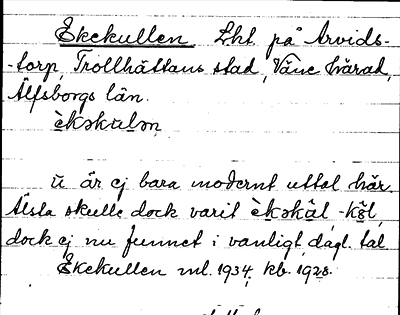 Ekekullen Lht. på Arvids-
-torp, Trollhättans stad, Väne härad,
Älfsborgs län.
èkəkulən
ŭ är ej bara modernt uttal här.
Älsta skulle dock varit èkəkàl -kŏl,
dock ej nu funnet i vanligt dagl. tal
Ekekullen ml. 1934, kb. 1928.